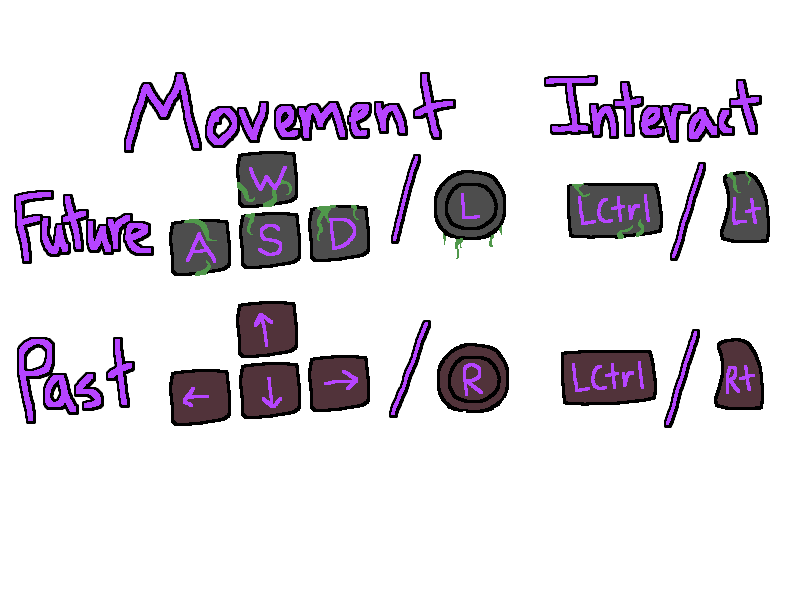 Movement Interact
W
Future A S D / L LCtrl / Lt
↑
Past ← ↓ → / R LCtrl / Rt